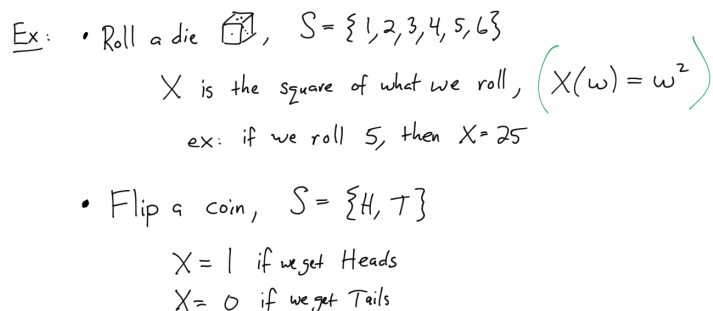 Ex: • Roll a die , S = {1,2,3,4,5,6}
X is the square of what we roll, (X(ω) = ω²)
ex: if we roll 5, then X = 25
• Flip a coin, S = {H, T}
X = 1 if we get Heads
X = 0 if we get Tails